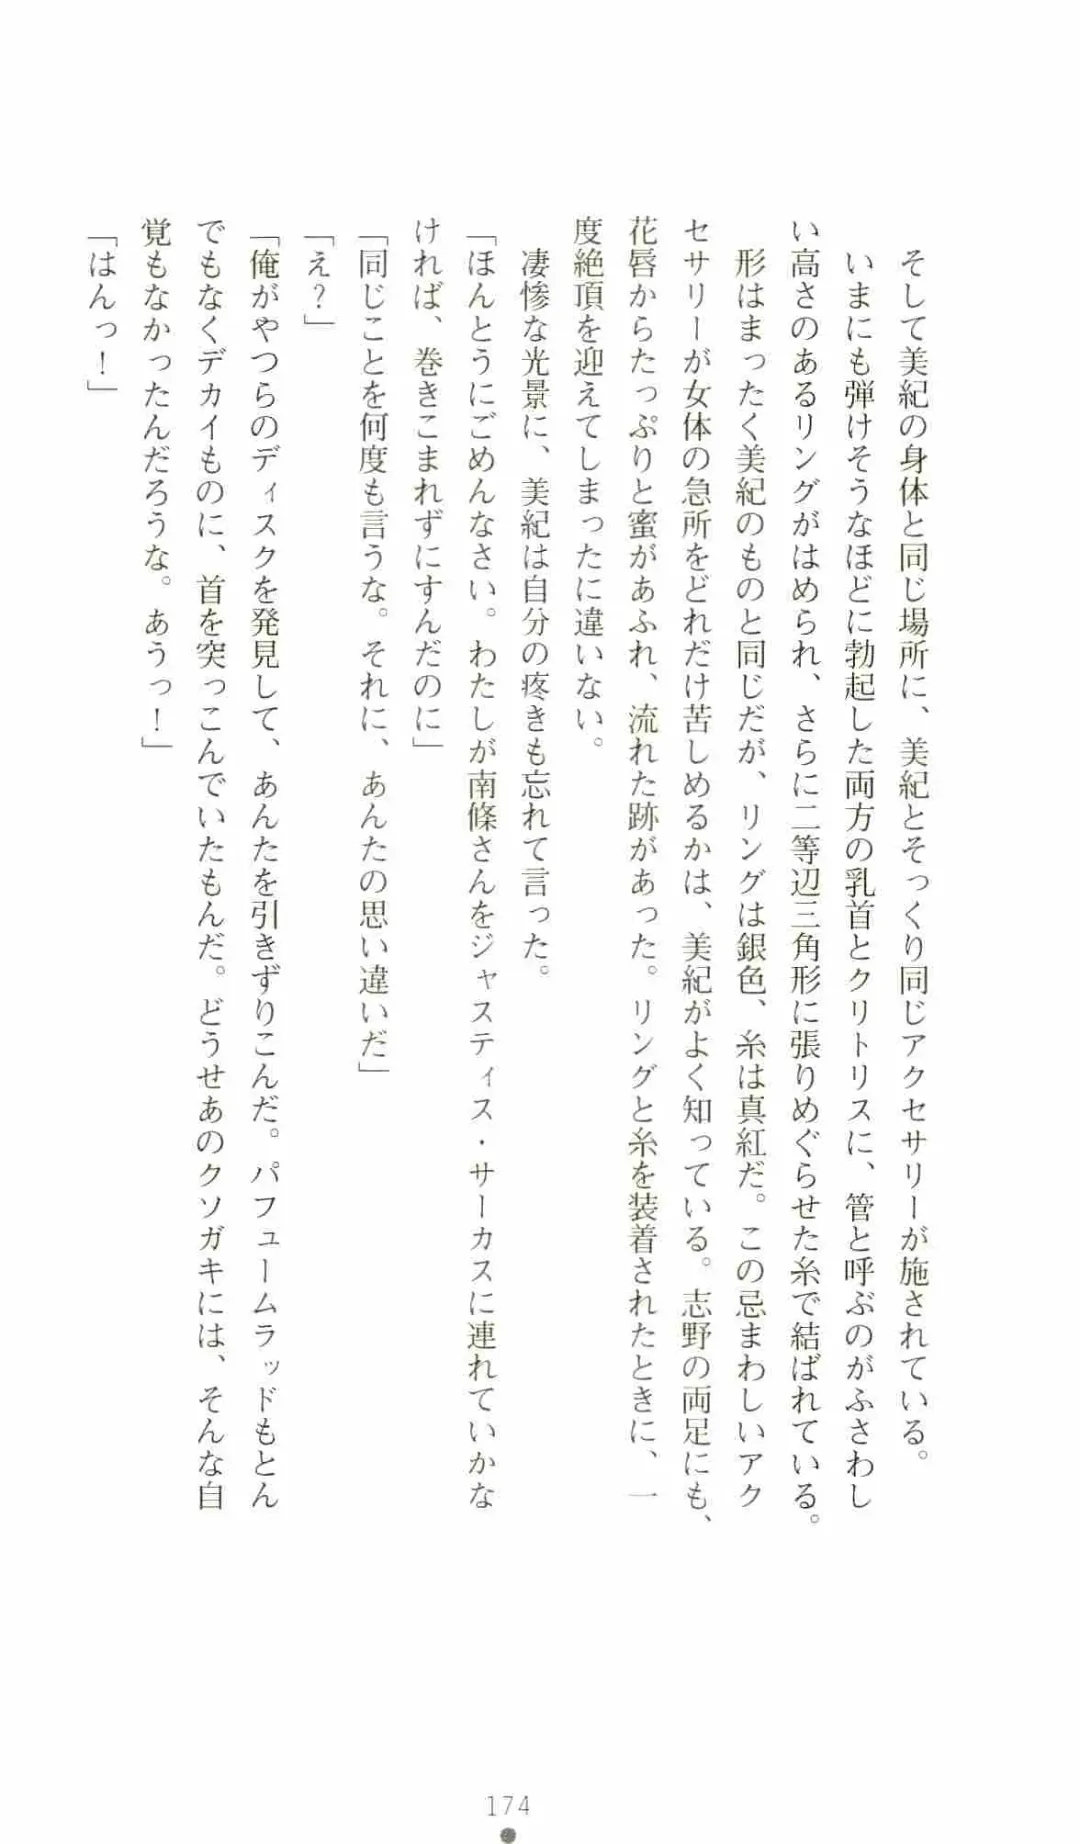 そして美紀の身体と同じ場所に、美紀とそっくり同じアクセサリーが施されている。
いまにも弾けそうなほどに勃起した両方の乳首とクリトリスに、管と呼ぶのがふさわし
い高さのあるリングがはめられ、さらに二等辺三角形に張りめぐらせた糸で結ばれている。
形はまったく美紀のものと同じだが、リングは銀色、糸は真紅だ。この忌まわしいアク
セサリーが女体の急所をどれだけ苦しめるかは、美紀がよく知っている。志野の両足にも、
花唇からたっぷりと蜜があふれ、流れた跡があった。リングと糸を装着されたときに、一
度絶頂を迎えてしまったに違いない。
凄惨な光景に、美紀は自分の疼きも忘れて言った。
「ほんとうにごめんなさい。わたしが南條さんをジャスティス・サーカスに連れていかな
ければ、巻きこまれずにすんだのに」
「同じことを何度も言うな。それに、あんたの思い違いだ」
「え？」
「俺がやつらのディスクを発見して、あんたを引きずりこんだ。パフュームラッドもとん
でもなくデカイものに、首を突っこんでいたもんだ。どうせあのクソガキには、そんな自
覚もなかったんだろうな。あうっ！」
「はんっ！」
174